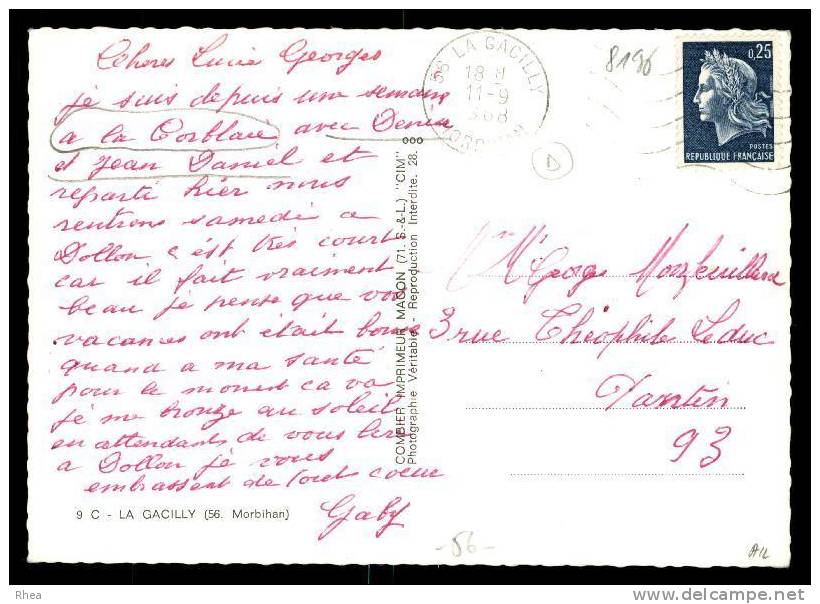 Chers Lucie Georges
je suis depuis une semaine
a la Corblaie avec Denise
et Jean Daniel et
reparti hier nous
rentrons samedi a
Dollon c'est très court
car il fait vraiment
beau je pense que vos
vacances ont était bonnes
quand a ma santé
pour le moment ca va
je me trouve au soleil
en attendants de vous lire
a Dollon je vous
embrassent de tout coeur
Gaby
9 C - LA GACILLY (56. Morbihan)
COMBIER IMPRIMEUR MACON (71. S.-&-L.) "CIM"
Photographie Véritable - Reproduction Interdite. 28.
56 LA GACILLY
18 H
11-9
1968
MORBIHAN
8196
0,25
POSTES
REPUBLIQUE FRANÇAISE
D
Mr Mme Georges
3 rue Théophile Leduc
Pantin
93
-56-
Rhea
delcampe.net